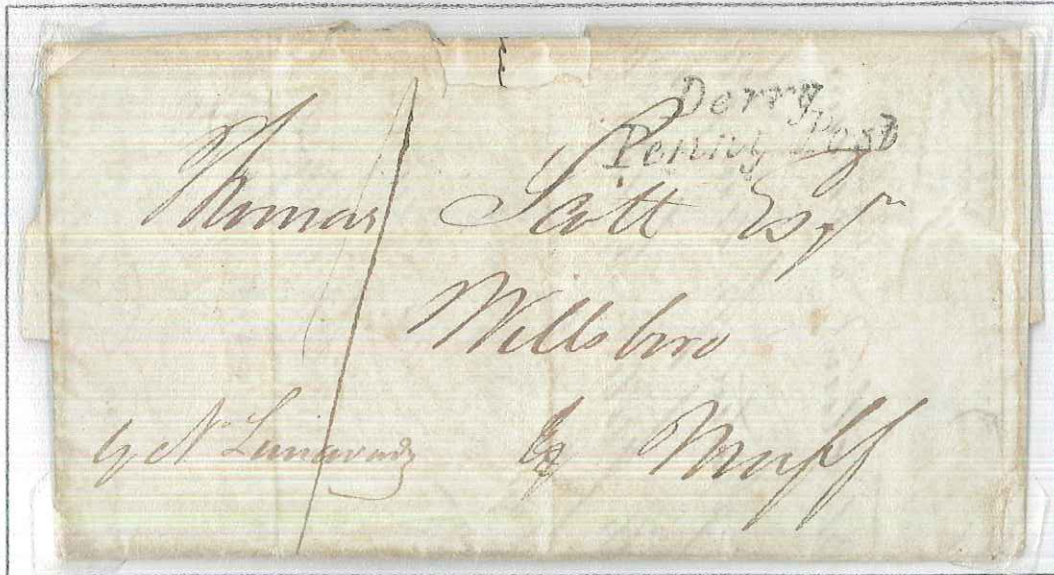 Derry
Penny Post
Thomas Scott Esqr
Willsboro
by Muff
by N. Limavady
1